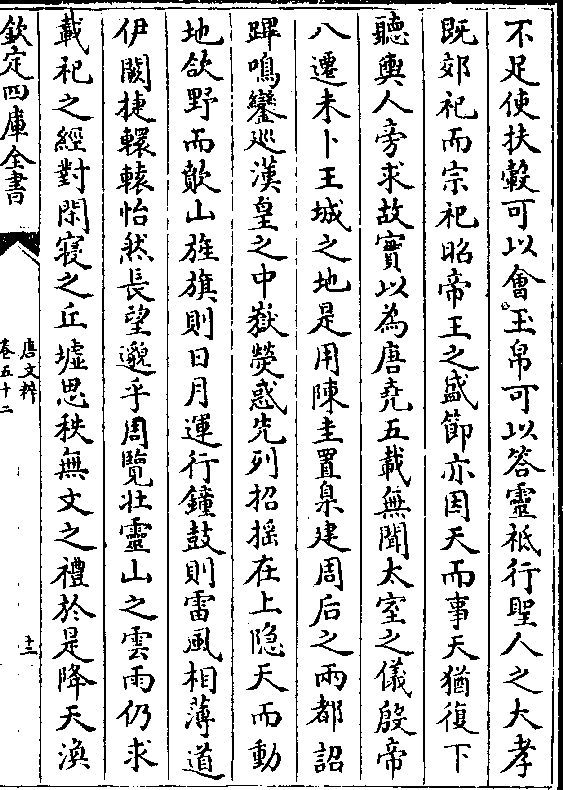 不足使扶轂可以會玉帛可以答靈祗行聖人之大孝
既郊祀而宗祀昭帝王之盛節亦因天而事天猶復下
聽輿人旁求故實以為唐堯五載無聞太室之儀殷帝
八遷未卜王城之地是用陳圭置臬建周后之兩都詔
蹕鳴鑾廵漢皇之中嶽熒惑先列招摇在上隐天而動
地欱野而歕山旌旗則日月運行鐘鼓則雷風相薄道
伊闕捷轘轅怡然長望邈乎周覽壮靈山之雲雨仍求
載祀之經對閑寝之丘墟思秩無文之禮於是降天渙
欽定四庫全書
唐文粹
卷五十二
十二